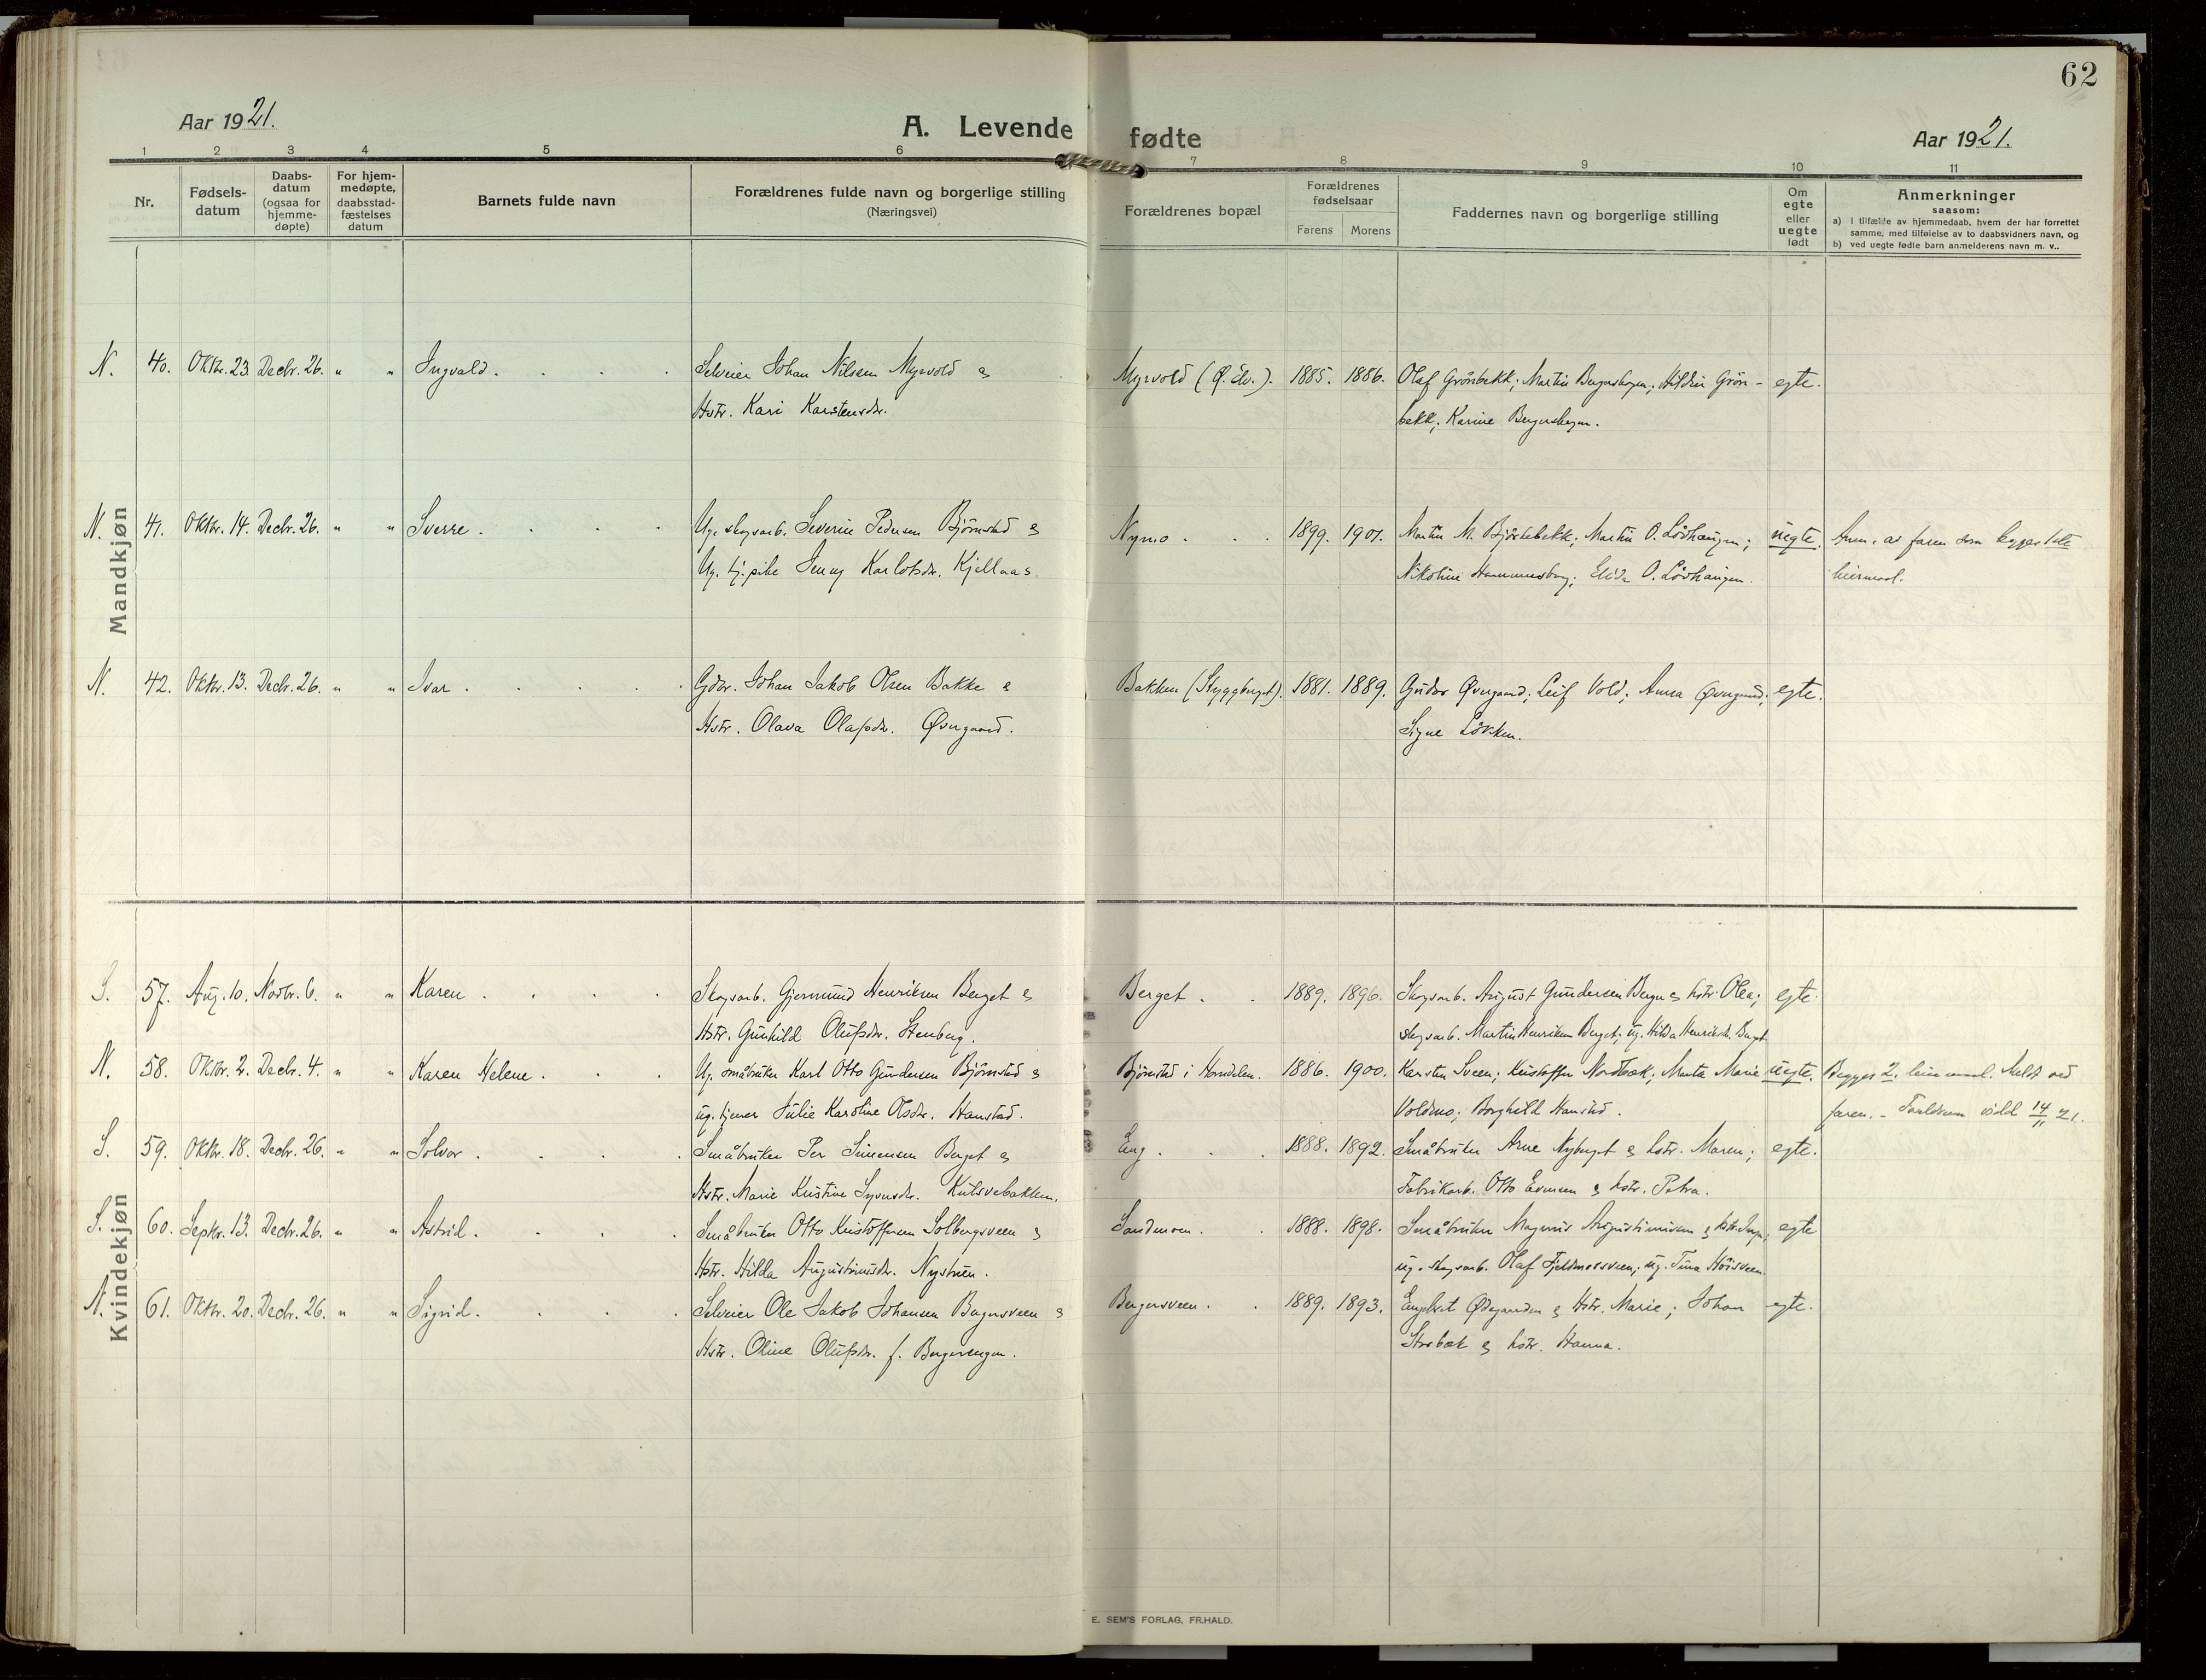 62
Aar 1921.
A. Levende fødte
Aar 1921.
1 2 3 4 5 6 7 8 9 10 11
Nr.
Fødsels-
datum
Daabs-
datum
(ogsaa for
hjemme-
døpte)
For hjem-
medøpte,
daabsstad-
fæstelses
datum
Barnets fulde navn
Forældrenes fulde navn og borgerlige stilling
(Næringsvei)
Forældrenes bopæl
Forældrenes
fødselsaar
Farens Morens
Faddernes navn og borgerlige stilling
Om
egte
eller
uegte
født
Anmerkninger
saasom:
a) i tilfælde av hjemmedaab, hvem der har forrettet
samme, med tilføielse av to daabsvidners navn, og
b) ved uegte fødte barn anmelderens navn m. v..
Mandkjøn
N. 40. Oktbr. 23. Decbr. 26. " " Ingvald. Selveier Johan Nilsen Myrvold & Myrvold (Ø. Elv.). 1885. 1886. Olaf Grönbekk; Martin Bergershagen; Hildur Grön- egte.
Hstr. Kari Karstensdr. bekk; Karine Bergershagen.
N. 41. Oktbr. 14. Decbr. 26. " " Sverre. Ug. skogsarb. Severin Pedersen Björnstad & Nymo. 1899. 1901. Martin M. Björkebekk; Martin O. Lövhaugen; uegte. Anm. av faren som begges 1ste
Ug. tj.pike Jenny Karlotsdr. Kjellaas. Nikoline Hammersborg; Elida O. Lövhaugen. leiermaal.
N. 42. Oktbr. 13. Decbr. 26. " " Ivar. Gdbr. Johan Jakob Olsen Bakke & Bakken (Skyggberget). 1881. 1889. Gudor Øvergaard; Leif Vold; Anna Øvergaard; egte.
Hstr. Olava Olafsdr. Øvergaard. Signe Lövken.
Kvindekjøn
S. 57. Aug. 10. Novbr. 6. " " Karen. Skogsarb. Gjermund Henriksen Berget & Berget. 1889. 1896. Skogsarb. August Gundersen Berget & hstr. Olea; egte.
Hstr. Gunhild Olufsdr. Stenberg. skogsarb. Martin Henriksen Berget; ug. Hilda Henriksdr. Berget.
N. 58. Oktbr. 2. Decbr. 4. " " Karen Helene. Ug. småbruker Karl Otto Gundersen Björnstad & Björnstad i Horndalen. 1886. 1900. Karsten Sveen; Kristoffer Nordbæk; Marta Marie uegte. Begges 2. leiermaal. Meldt ved
ug. tjener Julie Karoline Olsdr. Hanstad. Voldmo; Borghild Hanstad. faren. -
S. 59. Oktbr. 18. Decbr. 26. " " Solvor. Småbruker Per Simensen Berget & Eng. 1888. 1892. Småbruker Arne Nyberget & hstr. Maren; egte.
Hstr. Marie Kristine Syversdr. Kulsvebakken. Fabrikarb. Otto Evensen & hstr. Petra.
S. 60. Septbr. 13. Decbr. 26. " " Astrid. Småbruker Otto Kristoffersen Solbergsveen & Sandmoen. 1888. 1898. Småbruker Magnus Augustinusen & hstr. Inga; egte
Hstr. Hilda Augustinusdr. Nystuen. ug. skogsarb. Olaf Fjeldmosveen; ug. Tina Höisveen.
N. 61. Oktbr. 20. Decbr. 26. " " Sigrid. Selveier Ole Jakob Johansen Bergersveen & Bergersveen. 1889. 1893. Engebret Ødegaarden & Hstr. Marie; Johan egte.
Hstr. Oline Olufsdr. f. Bergerengen. Storbæk & hstr. Hanna.
E. SEM'S FORLAG, FR.HALD.